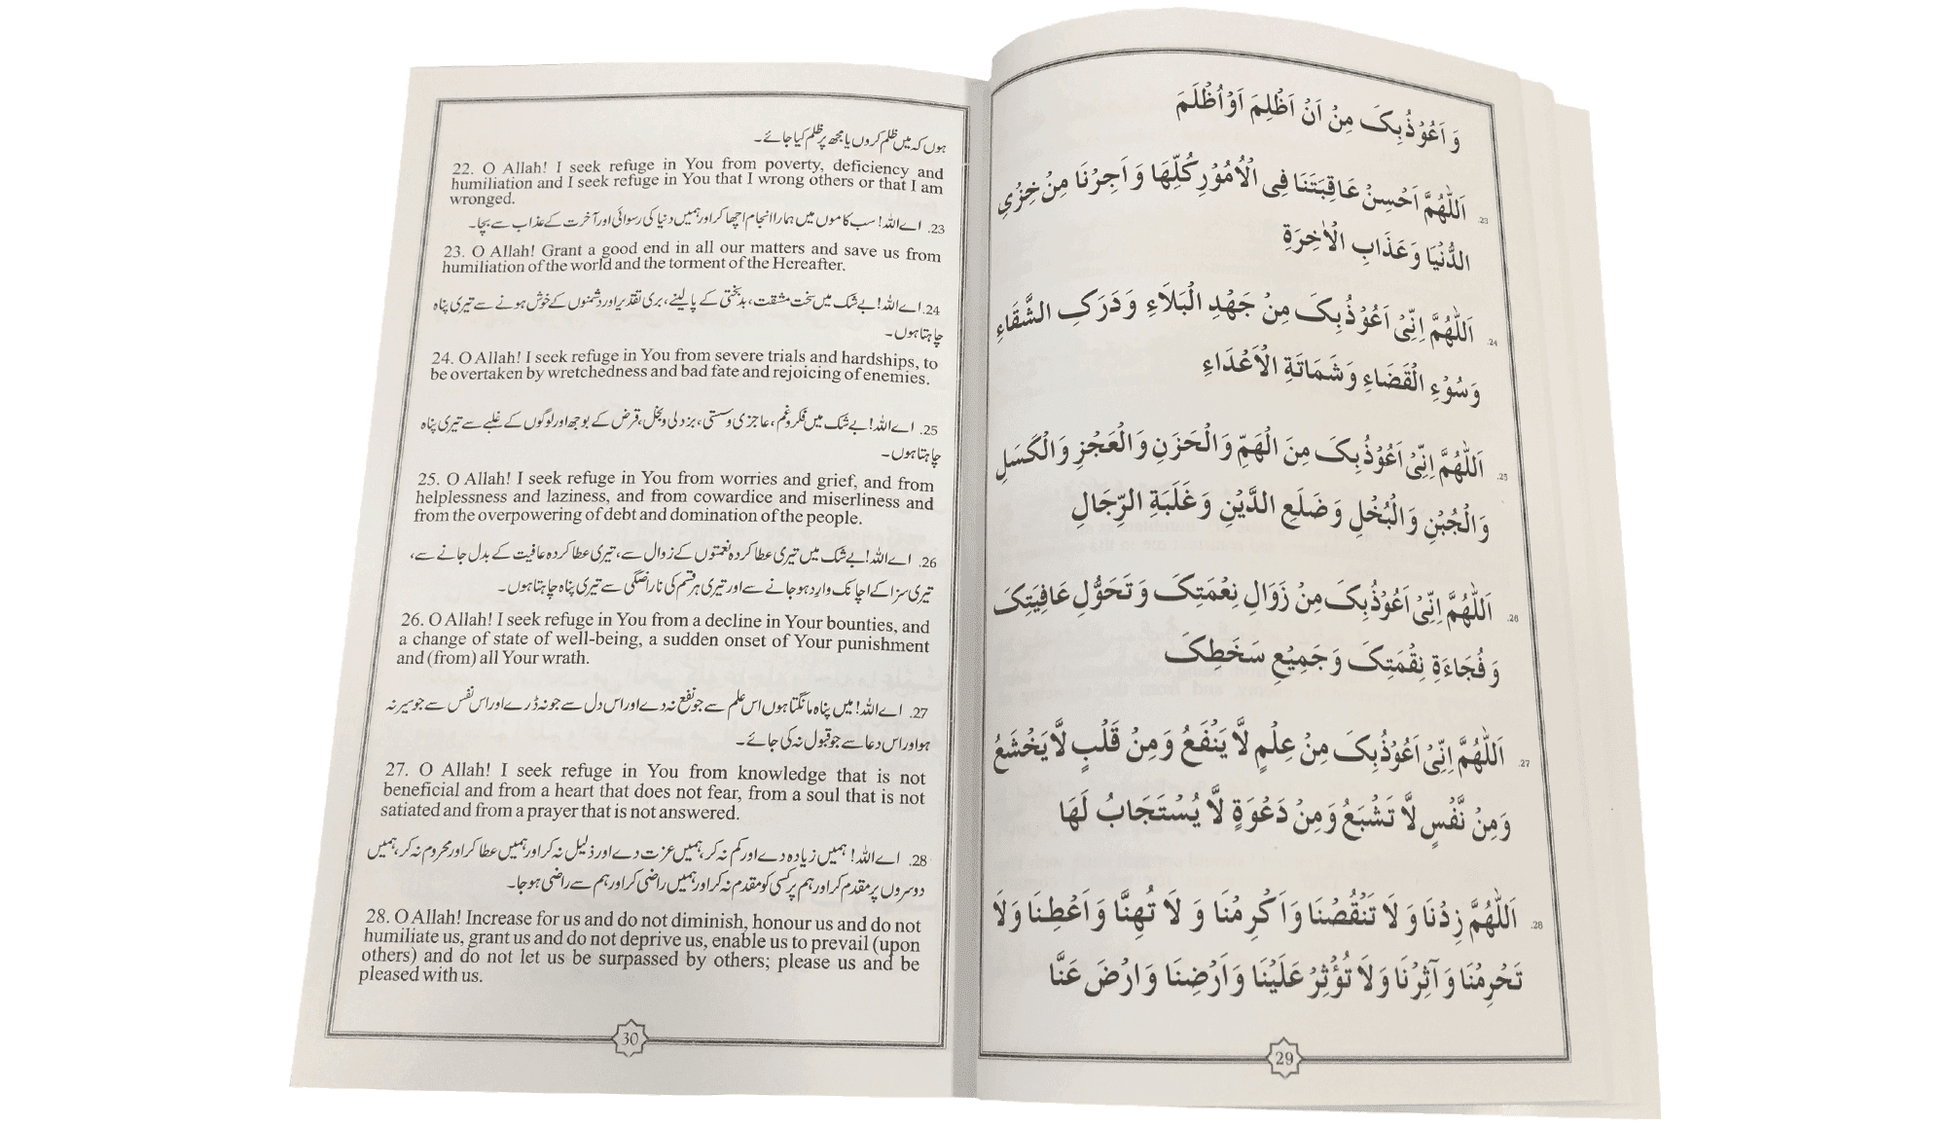 وَ اَعُوْذُبِکَ مِنْ اَنْ اَظْلِمَ اَوْ اُظْلَمَ
23. اَللّٰهُمَّ اَحْسِنْ عَاقِبَتَنَا فِی الْاُمُوْرِ کُلِّهَا وَ اَجِرْنَا مِنْ خِزْیِ
الدُّنْیَا وَ عَذَابِ الْاٰخِرَةِ
24. اَللّٰهُمَّ اِنِّیْ اَعُوْذُبِکَ مِنْ جَهْدِ الْبَلَاءِ وَ دَرَکِ الشَّقَاءِ
وَ سُوْءِ الْقَضَاءِ وَ شَمَاتَةِ الْاَعْدَاءِ
25. اَللّٰهُمَّ اِنِّیْ اَعُوْذُبِکَ مِنَ الْهَمِّ وَ الْحَزَنِ وَ الْعَجْزِ وَ الْکَسَلِ
وَ الْجُبْنِ وَ الْبُخْلِ وَ ضَلَعِ الدَّیْنِ وَ غَلَبَةِ الرِّجَالِ
26. اَللّٰهُمَّ اِنِّیْ اَعُوْذُبِکَ مِنْ زَوَالِ نِعْمَتِکَ وَ تَحَوُّلِ عَافِیَتِکَ
وَ فُجَاءَةِ نِقْمَتِکَ وَ جَمِیْعِ سَخَطِکَ
27. اَللّٰهُمَّ اِنِّیْ اَعُوْذُبِکَ مِنْ عِلْمٍ لَّا یَنْفَعُ وَ مِنْ قَلْبٍ لَّا یَخْشَعُ
وَ مِنْ نَّفْسٍ لَّا تَشْبَعُ وَ مِنْ دَعْوَةٍ لَّا یُسْتَجَابُ لَهَا
28. اَللّٰهُمَّ زِدْنَا وَ لَا تَنْقُصْنَا وَ اَکْرِمْنَا وَ لَا تُهِنَّا وَ اَعْطِنَا وَ لَا
تَحْرِمْنَا وَ آثِرْنَا وَ لَا تُؤْثِرْ عَلَیْنَا وَ اَرْضِنَا وَ ارْضَ عَنَّا
29
ہوں کہ میں ظلم کروں یا مجھ پر ظلم کیا جائے۔
22. O Allah! I seek refuge in You from poverty, deficiency and
humiliation and I seek refuge in You that I wrong others or that I am
wronged.
23. اے اللہ! سب کاموں میں ہمارا انجام اچھا کر اور ہمیں دنیا کی رسوائی اور آخرت کے عذاب سے بچا۔
23. O Allah! Grant a good end in all our matters and save us from
humiliation of the world and the torment of the Hereafter.
24. اے اللہ! بے شک میں سخت مشقت، بدبختی کے پالینے، بری تقدیر اور دشمنوں کے خوش ہونے سے تیری پناہ
چاہتا ہوں۔
24. O Allah! I seek refuge in You from severe trials and hardships, to
be overtaken by wretchedness and bad fate and rejoicing of enemies.
25. اے اللہ! بے شک میں فکر و غم، عاجزی و سستی، بزدلی و بخل، قرض کے بوجھ اور لوگوں کے غلبے سے تیری پناہ
چاہتا ہوں۔
25. O Allah! I seek refuge in You from worries and grief, and from
helplessness and laziness, and from cowardice and miserliness and
from the overpowering of debt and domination of the people.
26. اے اللہ! بے شک میں تیری عطا کردہ نعمتوں کے زوال سے، تیری عطا کردہ عافیت کے بدل جانے سے،
تیری سزا کے اچانک وارد ہو جانے سے اور تیری ہر قسم کی ناراضگی سے تیری پناہ چاہتا ہوں۔
26. O Allah! I seek refuge in You from a decline in Your bounties, and
a change of state of well-being, a sudden onset of Your punishment
and (from) all Your wrath.
27. اے اللہ! میں پناہ مانگتا ہوں اس علم سے جو نفع نہ دے اور اس دل سے جو نہ ڈرے اور اس نفس سے جو سیر نہ
ہو اور اس دعا سے جو قبول نہ کی جائے۔
27. O Allah! I seek refuge in You from knowledge that is not
beneficial and from a heart that does not fear, from a soul that is not
satiated and from a prayer that is not answered.
28. اے اللہ! ہمیں زیادہ دے اور کم نہ کر، ہمیں عزت دے اور ذلیل نہ کر اور ہمیں عطا کر اور محروم نہ کر، ہمیں
دوسروں پر مقدم کر اور ہم پر کسی کو مقدم نہ کر اور ہمیں راضی کر اور ہم سے راضی ہو جا۔
28. O Allah! Increase for us and do not diminish, honour us and do not
humiliate us, grant us and do not deprive us, enable us to prevail (upon
others) and do not let us be surpassed by others; please us and be
pleased with us.
30